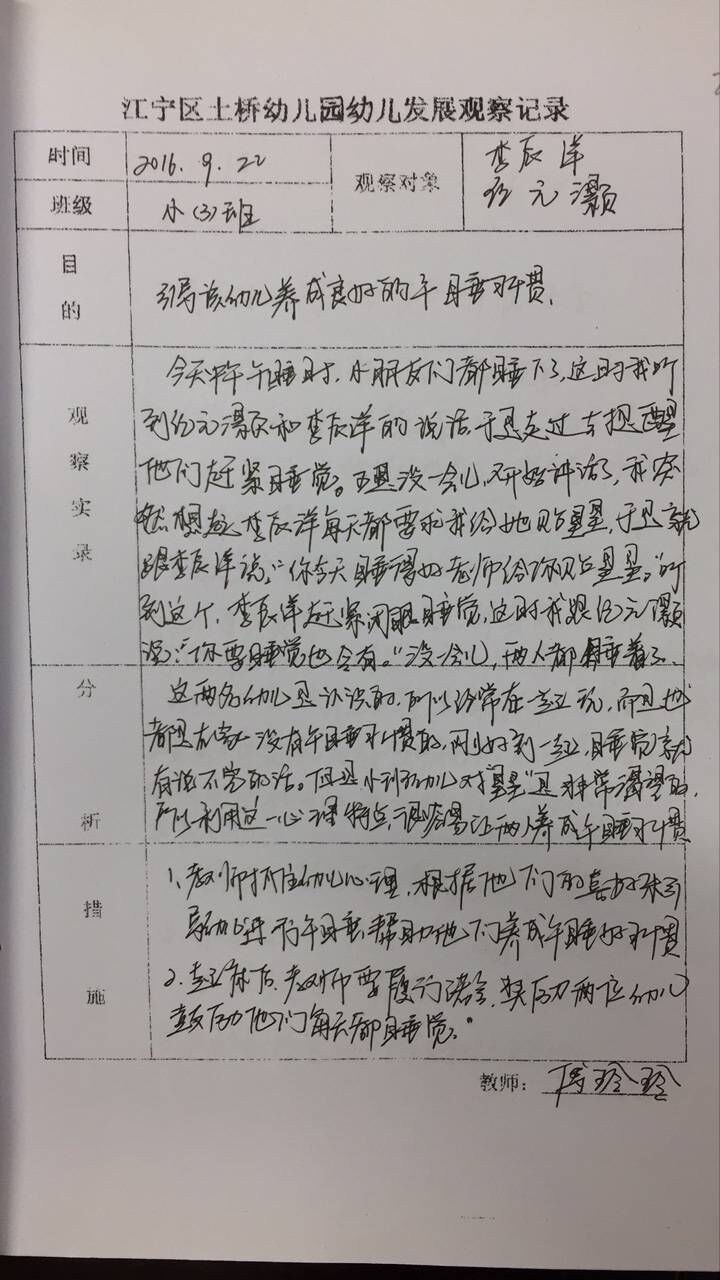 江宁区土桥幼儿园幼儿发展观察记录
时间 2016.9.22 观察对象 李辰洋
班级 小(3)班 元灏
目的 引导该幼儿养成良好的午睡习惯.
观察实录
今天中午午睡时，小朋友们都睡下了，这时我听
到 元灏和李辰洋的说话，于是走过去提醒
他们赶紧睡觉。可是没一会儿，又开始讲话了，我突
然想起李辰洋每天都要求我给她贴星星，于是就
跟李辰洋说：“你今天睡得好老师给你贴星星。”听
到这个，李辰洋赶紧闭眼睡觉，这时我跟 元灏
说：“你要睡觉也会有。”没一会儿，两人都睡着了.
分析
这两名幼儿是认识的，所以经常在一起玩，而且也
都是在家没有午睡习惯的，刚好到一起，睡觉就
有说不完的话。但是小班幼儿对“星星”是非常渴望的，
所以利用这一心理特点，很容易让两人养成午睡习惯
措施
1、教师抓住幼儿心理，根据他们的喜好来引
导幼儿进行午睡，帮助他们养成午睡好习惯
2、起床后，教师要履行诺言，奖励两位幼儿
鼓励他们每天都睡觉。”
教师： 玲玲